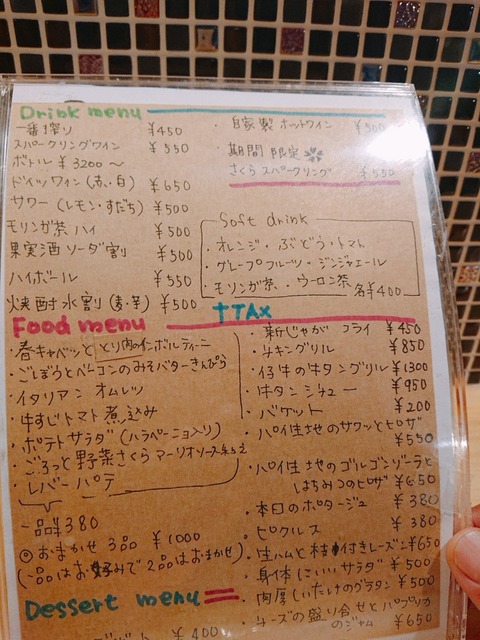 Drink menu
一番搾り ¥450
スパークリングワイン ¥550
ボトル ¥3200〜
ドイツワイン(赤・白) ¥650
サワー(レモン・すだち) ¥500
モリンガ茶ハイ ¥500
果実酒ソーダ割 ¥500
ハイボール ¥550
焼酎水割(麦・芋) ¥500
・自家製ホットワイン ¥500
・期間限定
さくらスパークリング ¥550
Soft drink
・オレンジ・ぶどう・トマト
・グレープフルーツ・ジンジャエール
・モリンガ茶・ウーロン茶
各¥400
Food menu
+TAX
・春キャベツととり肉のインボルティーニ
・ごぼうとベーコンのみそバターきんぴら
・イタリアンオムレツ
・牛すじトマト煮込み
・ポテトサラダ(ハラペーニョ入り)
・ごろっと野菜さくらマーリオソース
・レバーパテ
一品¥380
◎おまかせ3品 ¥1000
(一品はお好みで2品はおまかせ)
・新じゃがフライ ¥450
・牛キングリル ¥850
・仔牛の牛タングリル ¥1300
・牛タンシチュー ¥950
・バケット ¥200
・パイ生地のサワッとピザ
¥550
・パイ生地のゴルゴンゾーラと
はちみつのピザ ¥650
・本日のポタージュ ¥380
・ピクルス ¥380
・生ハムと枝付きレーズン ¥650
・身体にいいサラダ ¥500
・肉厚しいたけのグラタン ¥500
・チーズの盛り合せとパプリカ
のジャム ¥650
Dessert menu
¥400